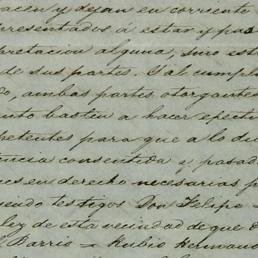 hacen y dejan en corriente
presentados á estar y pasar
pretacion alguna, sino esta
de sus partes. Y al cumpli
do, ambas partes otorgantes
nto basten a hacer efecti
petentes para que a lo di
encia consentida y pasad
nes en derecho necesarias p
iendo testigos Don Felipe
ley de esta vecindad de que d
Barrio = Rubio Hermano